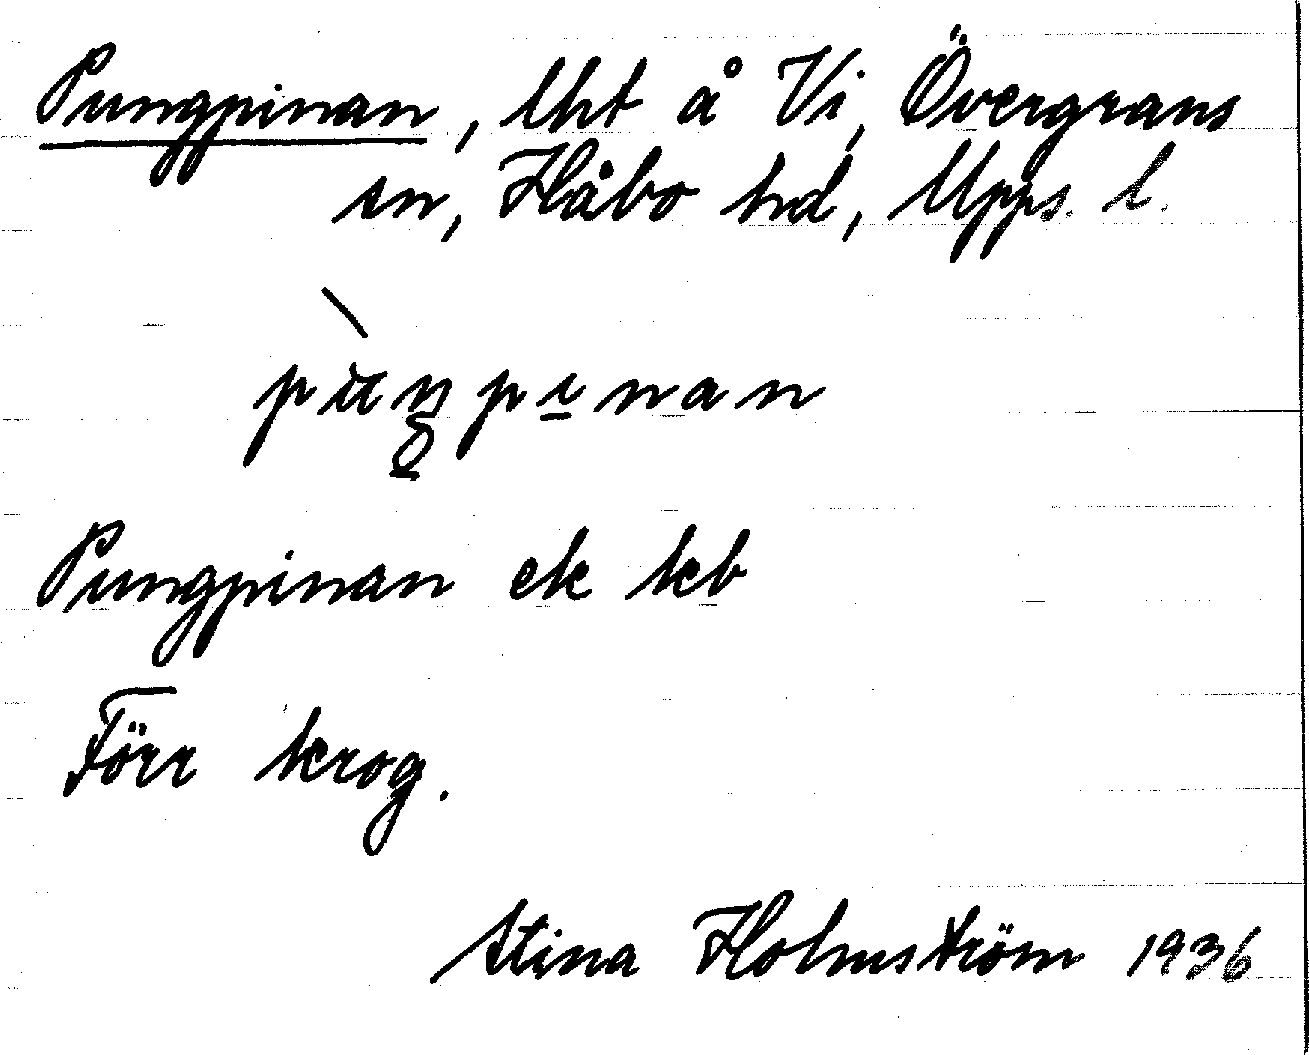 Pungpinan, lht å Vi, Övergrans
sn, Håbo hd, Upps. l.
Pungpinan ek kb
Förr krog.
Stina Holmström 1936